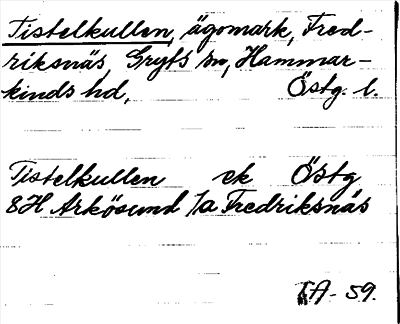 Tistelkullen, ägomark, Fred-
riksnäs, Gryts sn, Hammar-
kinds hd, Östg. l.
Tistelkullen ek Östg
8H Arkösund 1a Fredriksnäs
TA- 59.